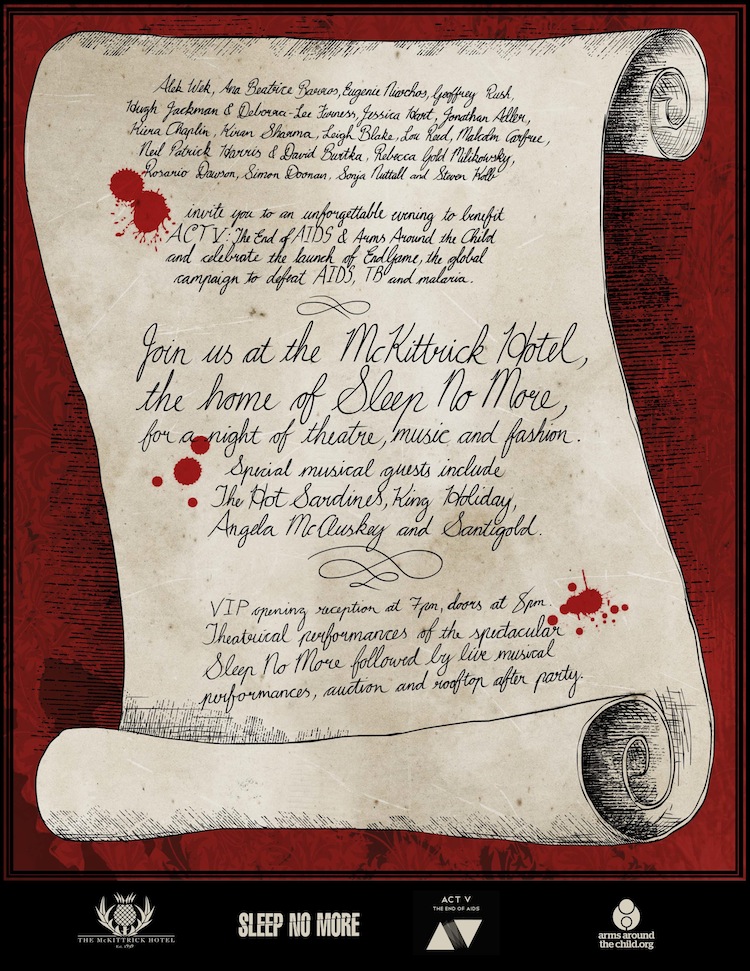 Alek Wek, Ana Beatrice Barros, Eugenie Niarchos, Geoffrey Rush,
Hugh Jackman & Deborra-Lee Furness, Jessica Hart, Jonathan Adler,
Kiera Chaplin, Kiran Sharma, Leigh Blake, Lou Reed, Malcolm Carfrae,
Neil Patrick Harris & David Burtka, Rebecca Gold Milikowsky,
Rosario Dawson, Simon Doonan, Sonja Nuttall and Steven Kolb
invite you to an unforgettable evening to benefit
ACT V: The End of AIDS & Arms Around the Child
and celebrate the launch of EndGame, the global
campaign to defeat AIDS, TB and malaria.
Join us at the McKittrick Hotel,
the home of Sleep No More,
for a night of theatre, music and fashion.
Special musical guests include
The Hot Sardines, King Holiday,
Angela McCluskey and Santigold.
VIP opening reception at 7pm, doors at 8pm.
Theatrical performances of the spectacular
Sleep No More followed by live musical
performances, auction and rooftop after party.
THE McKITTRICK HOTEL
Est. 1939
SLEEP NO MORE
ACT V
THE END OF AIDS
arms around
the child.org